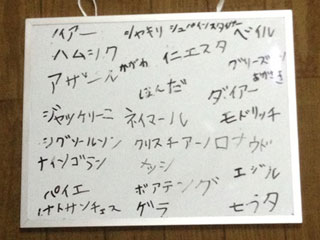 ノイアー シャキリ シュバインスタイガー ベイル
ハムシク かがわ イニエスタ グリーズマン
アザール ほんだ ダイアー おかざき
ジャッケリーニ ネイマール モドリッチ
シグソールソン クリスチアーノロナウド
ナインゴラン メッシ エジル
パイエ ボアテング
レナトサンチェス ゲラ モラタ